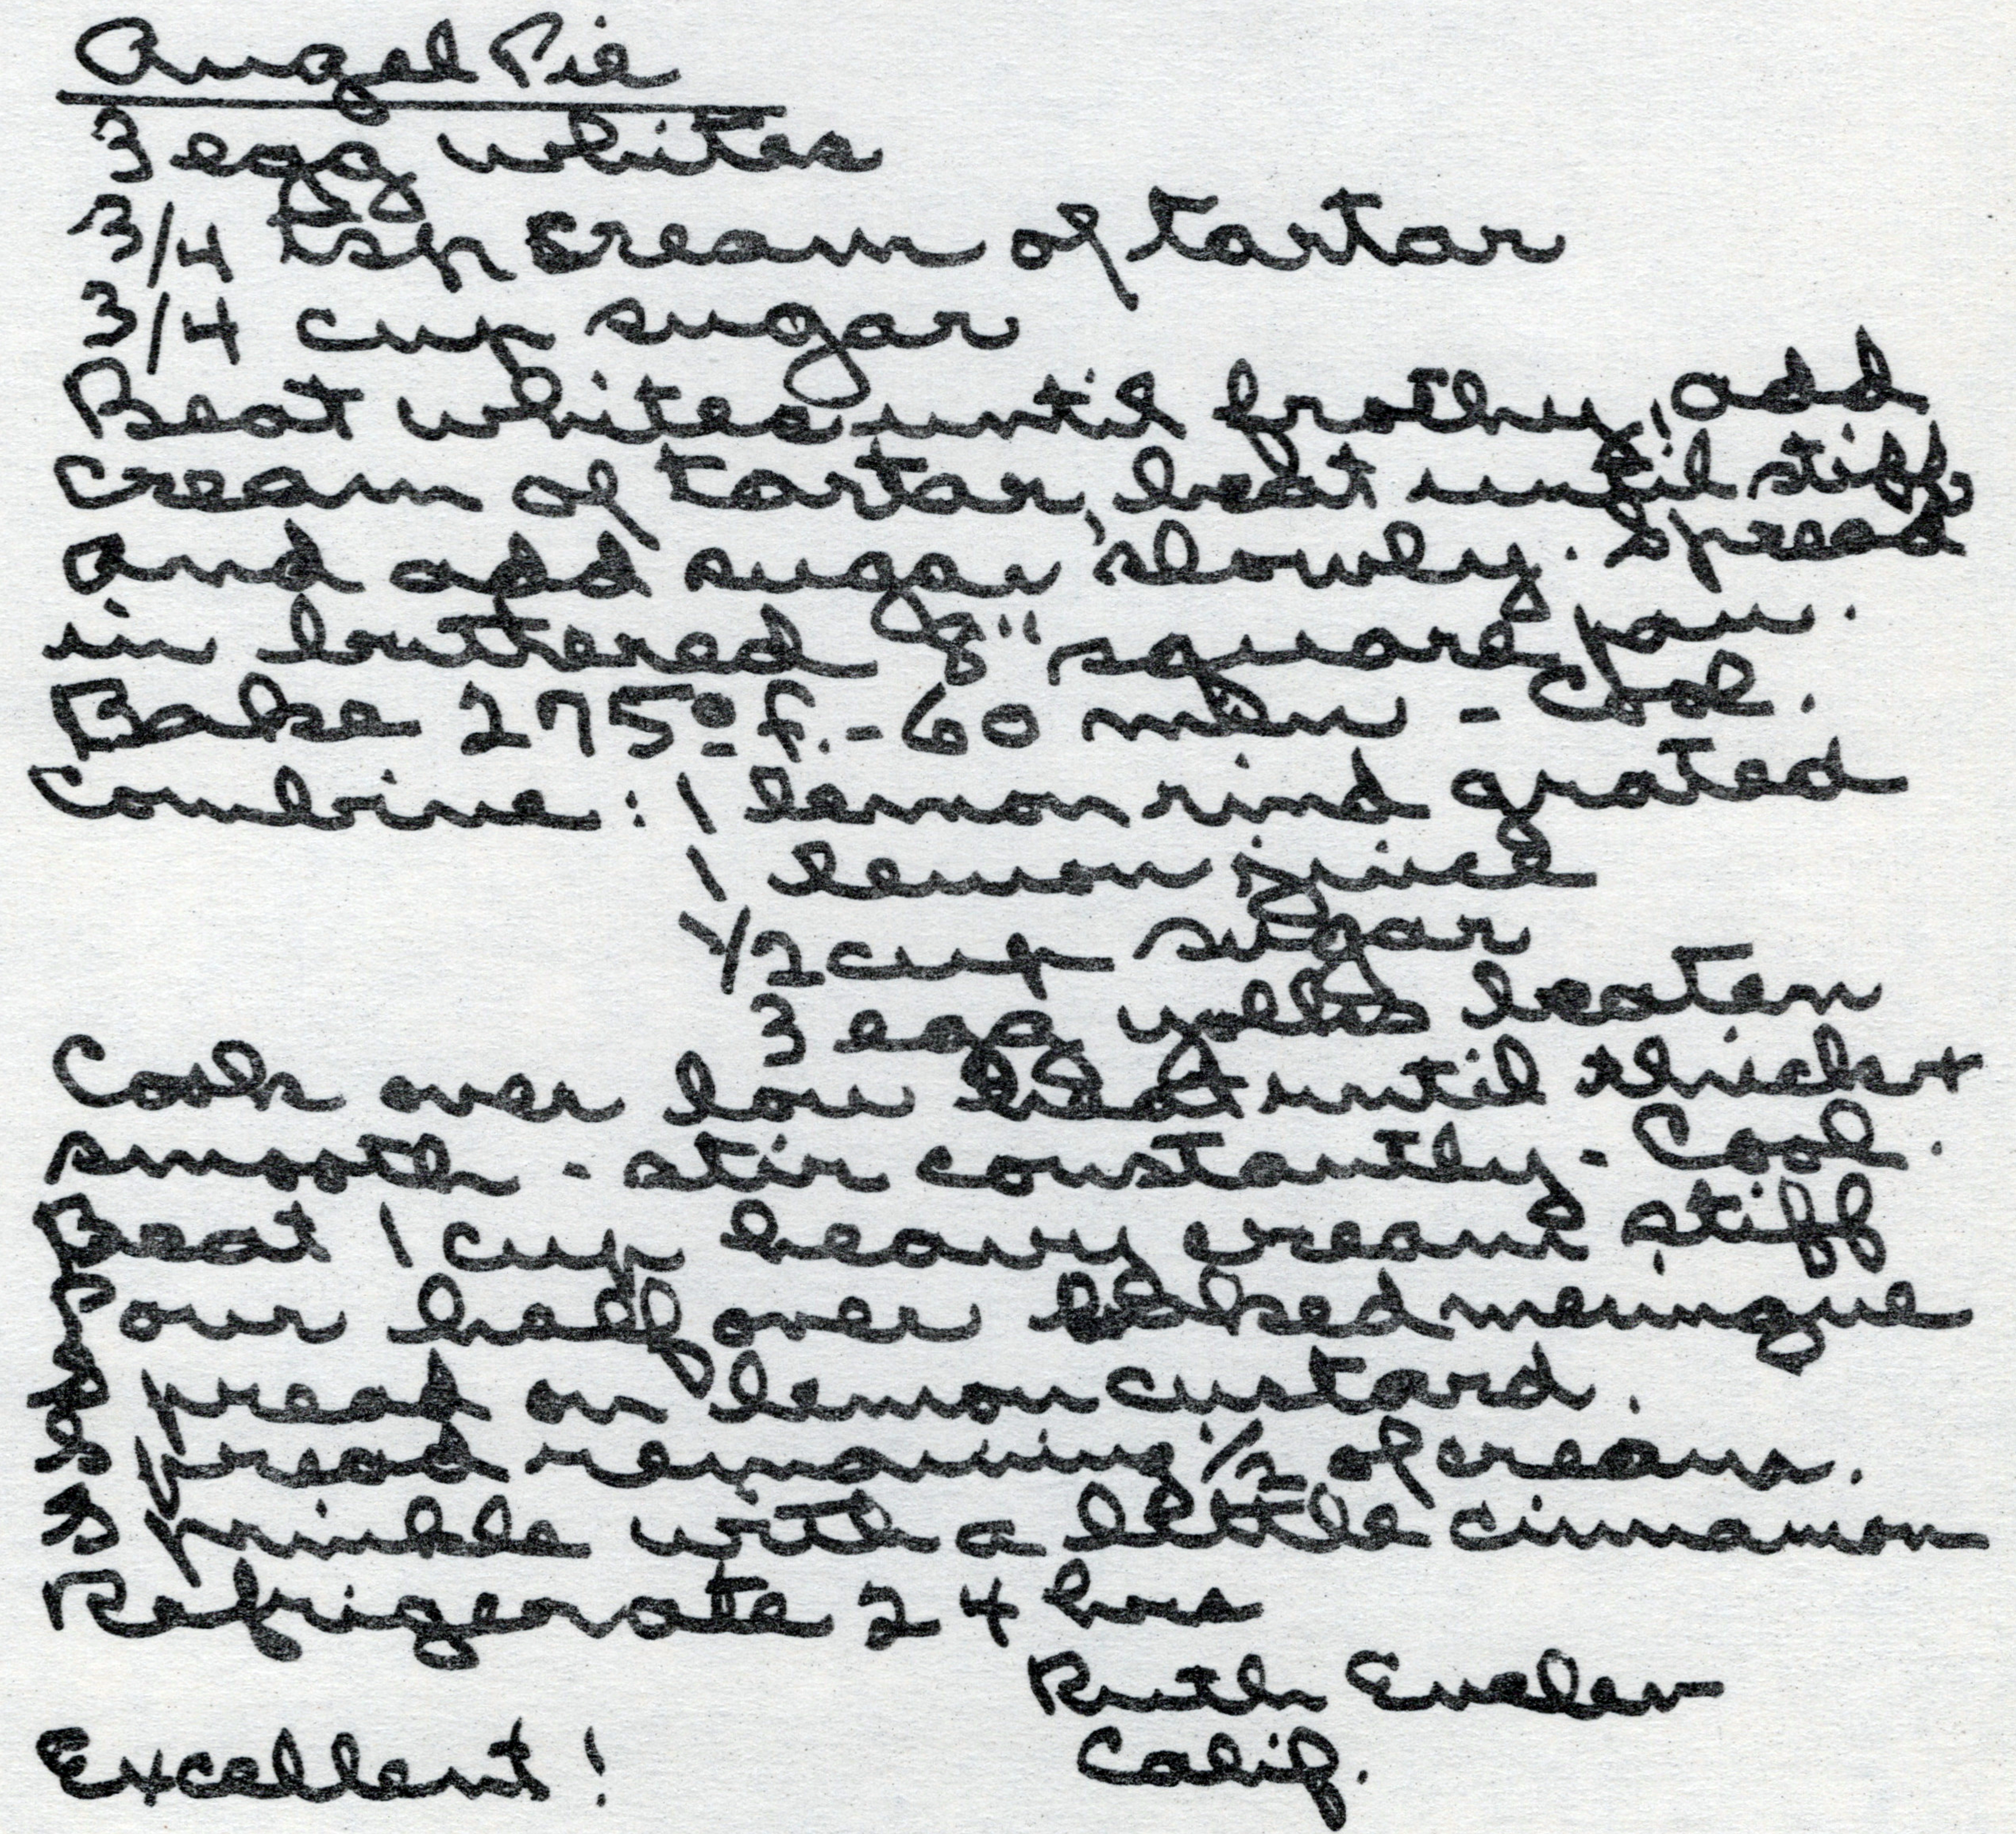 Angel Pie
3 egg whites
3/4 tsp cream of tartar
3/4 cup sugar
Beat whites until frothy, add
cream of tartar, beat until stiff,
and add sugar slowly. Spread
in buttered 8" square pan.
Bake 275° f. - 60 min - Cool.
Combine : 1 lemon rind grated
1 lemon juice
1/2 cup sugar
3 egg yolks beaten
Cook over low heat until thick +
smooth - stir constantly - Cool.
Beat 1 cup heavy cream stiff
Pour half over baked meringue
Spread on lemon custard.
Spread remaining 1/2 of cream.
Sprinkle with a little cinnamon
Refrigerate 24 hrs
Ruth
Calif.
Excellent!